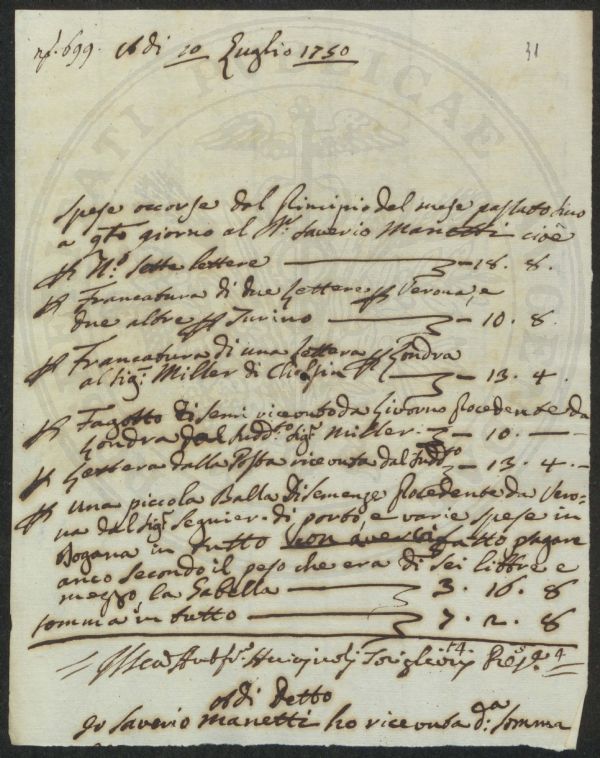 n.° 699. Adi 10 Luglio 1750
31
Spese occorse dal Principio del mese passato sino
a q.to giorno al Sr. Saverio Manetti cioè
P N.° sette lettere — 18. 8.
P Francatura di due Lettere P Verona, e
due altre P Turino — 10. 8.
P Francatura di una Lettera P Londra
al Sig.r Miller di — 13. 4.
P Fagotto di semi ricevuto da Livorno procedente da
Londra dal sudd.o Sig.r Miller. — 10. —
P Lettera dalla Posta ricevuta dal sudd.o — 13. 4. —
P una piccola Balla di semenze procedente da Vero-
na dal Sig.r Seguier. di porto, e varie spese in
Dogana in tutto con avermi fatto pagare
anco secondo il peso che era di sei libbre e
mezzo la Gabella — 3. 16. 8
somma in tutto — 7. 2. 8
Adi Detto
Io Saverio Manetti ho ricevuta d.a somma